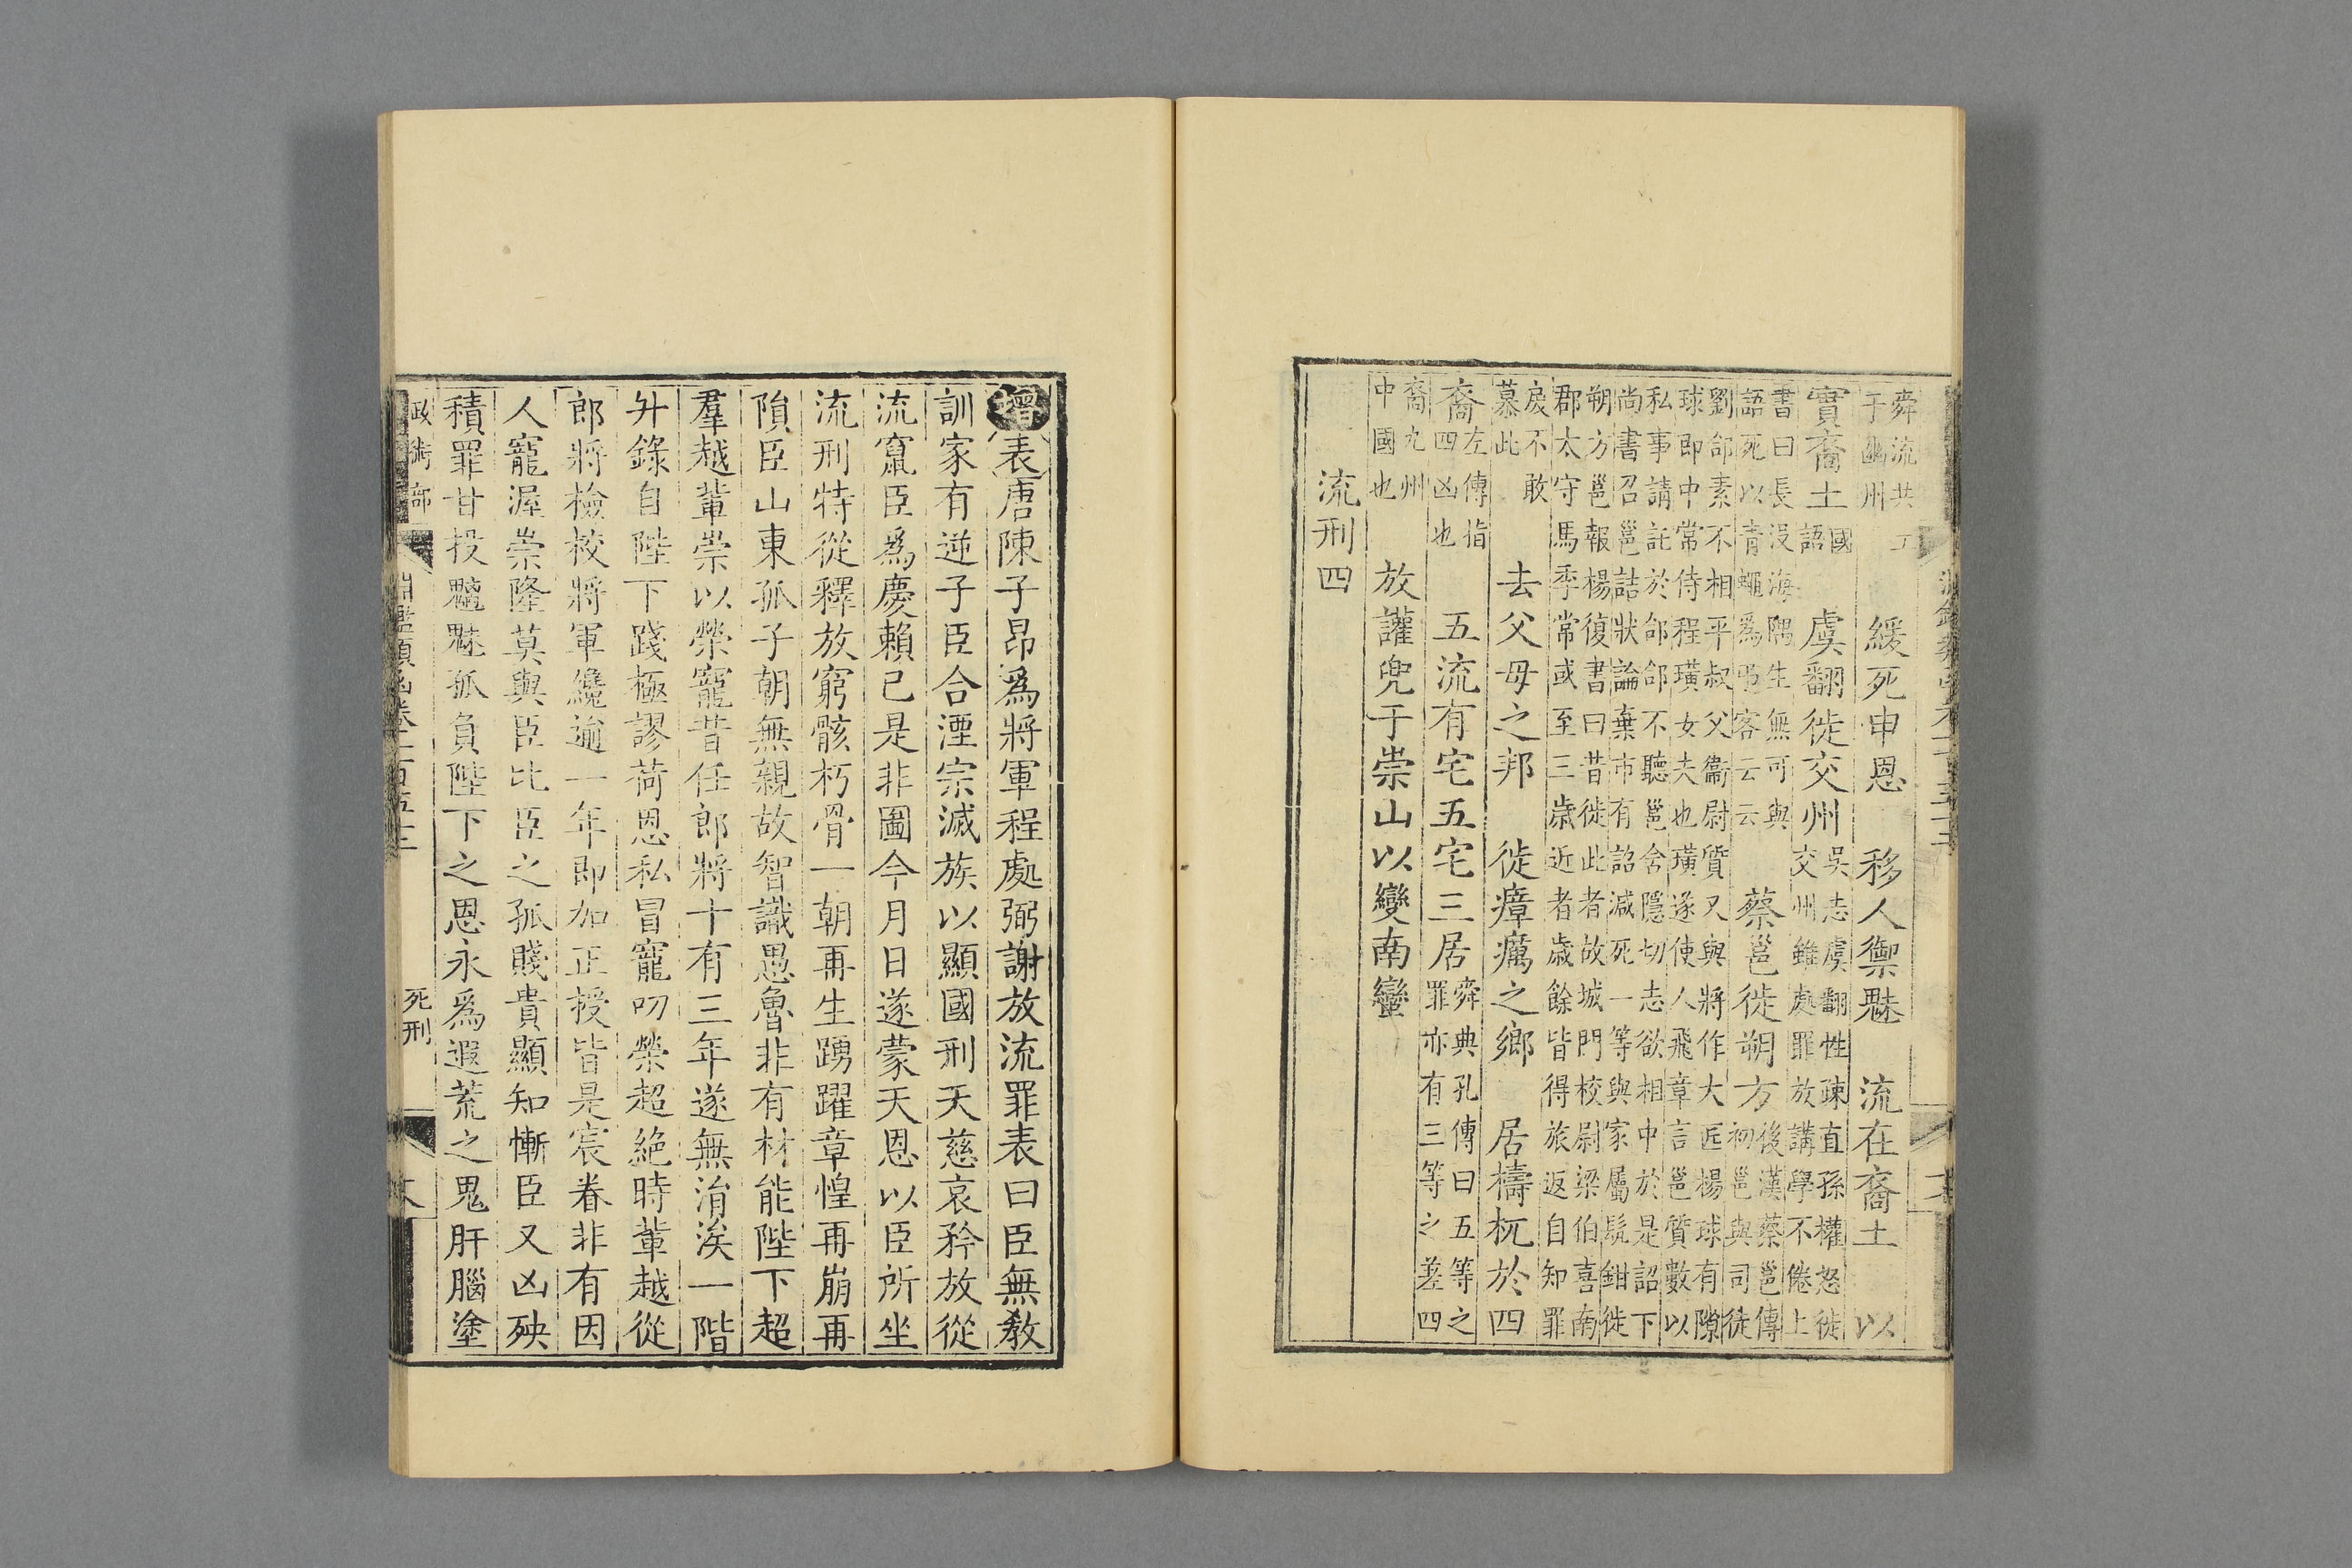 舜流共工于幽州　緩死申恩　移人禦魅　流在裔土　以
實裔土國語　虞翻徙交州吳志虞翻性疎直孫權怒徙交州雖處罪放講學不倦上
書曰長没海隅生無可與語死以青蠅爲弔客云云　蔡邕徙朔方後漢蔡邕傳初邕與司徒
劉郃素不相平叔父衞尉質又與將作大匠楊球有隙球即中常侍程璜女夫也璜遂使人飛章言邕質數以
私事請託於郃郃不聽邕含隱切志欲相中於是詔下尚書召邕詰狀論棄市有詔減死一等與家屬髡鉗徙
朔方邕報楊復書曰昔徙此者故城門校尉梁伯喜南郡太守馬季常或至三歲近者歲餘皆得旅返自知罪
戾不敢慕此　去父母之邦　徙瘴癘之鄉　居檮杌於四
裔左傳指四凶也　五流有宅五宅三居舜典孔傳曰五等之罪亦有三等之差四
裔九州中國也　放讙兜于崇山以變南蠻
流刑四
增表唐陳子昂爲將軍程處弼謝放流罪表曰臣無教
訓家有逆子臣合湮宗滅族以顯國刑天慈哀矜放從
流竄臣爲慶賴已是非圖今月日遂蒙天恩以臣所坐
流刑特從釋放窮骸朽骨一朝再生踴躍章惶再崩再
隕臣山東孤子朝無親故智識愚魯非有材能陛下超
羣越輩崇以榮寵昔任郎將十有三年遂無涓涘一階
升錄自陛下踐極謬荷恩私冒寵叨榮超絶時輩越從
郎將檢校將軍纔逾一年即加正授皆是宸眷非有因
人寵渥崇隆莫與臣比臣之孤賤貴顯知慚臣又凶殃
積罪甘投魑魅孤負陛下之恩永爲遐荒之鬼肝腦塗
政術部　淵鑑類函卷一百五十三　死刑